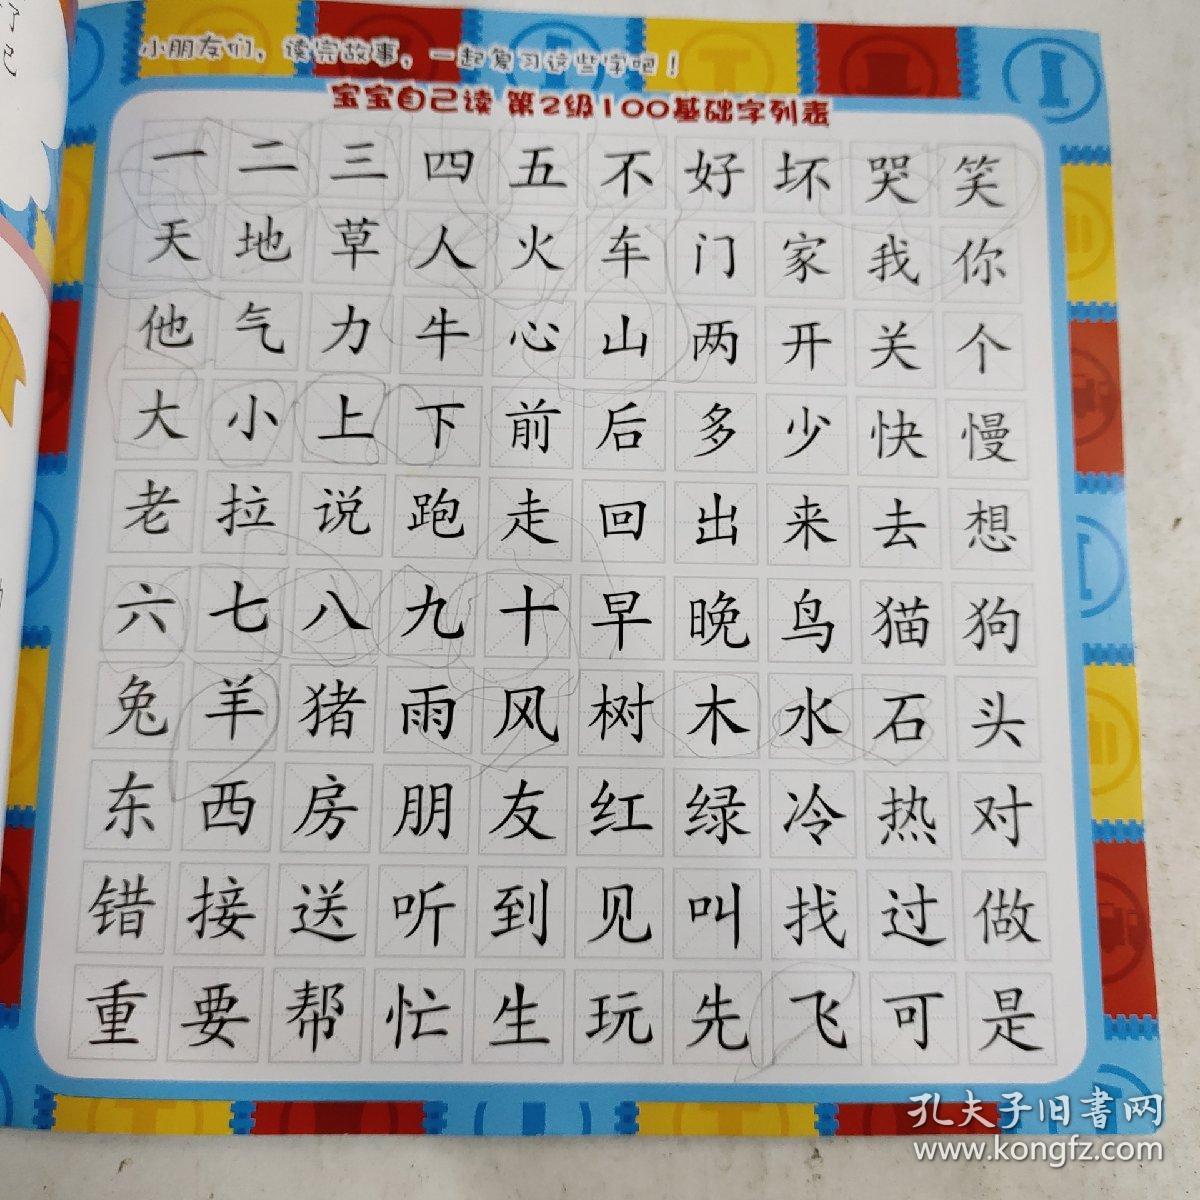 小朋友们，读完故事，一起复习这些字吧！
宝宝自己读 第2级100基础字列表
一 二 三 四 五 不 好 坏 哭 笑
天 地 草 人 火 车 门 家 我 你
他 气 力 牛 心 山 两 开 关 个
大 小 上 下 前 后 多 少 快 慢
老 拉 说 跑 走 回 出 来 去 想
六 七 八 九 十 早 晚 鸟 猫 狗
兔 羊 猪 雨 风 树 木 水 石 头
东 西 房 朋 友 红 绿 冷 热 对
错 接 送 听 到 见 叫 找 过 做
重 要 帮 忙 生 玩 先 飞 可 是
孔夫子旧書网
www.kongfz.com